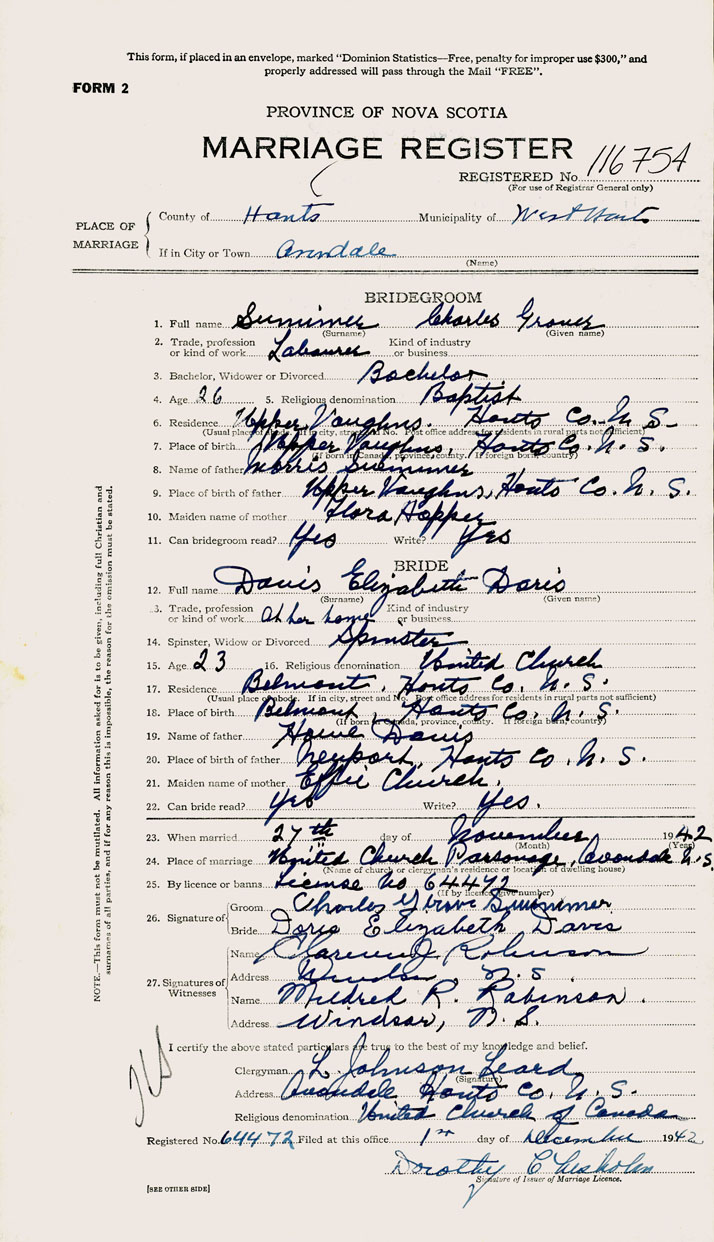 This form, if placed in an envelope, marked "Dominion Statistics—Free, penalty for improper use $300," and
properly addressed will pass through the Mail "FREE".
FORM 2
PROVINCE OF NOVA SCOTIA
MARRIAGE REGISTER
REGISTERED No. 116754
(For use of Registrar General only)
PLACE OF MARRIAGE
County of Hants Municipality of West Hants
If in City or Town Avondale
(Name)
BRIDEGROOM
1. Full name Summer Charles Grover
(Surname) (Given name)
2. Trade, profession or kind of work Labourer Kind of industry or business
3. Bachelor, Widower or Divorced Bachelor
4. Age 26 5. Religious denomination Baptist
6. Residence Upper Vaughns. Hants Co. N. S.
(Usual place of abode. If in city, street and No. Post office address for residents in rural parts not sufficient)
7. Place of birth Upper Vaughns, Hants Co. N. S.
(If born in Canada, province, county. If foreign born, country)
8. Name of father Morris Summer
9. Place of birth of father Upper Vaughns, Hants Co. N. S.
10. Maiden name of mother Flora Hopper
11. Can bridegroom read? Yes Write? Yes
BRIDE
12. Full name Davis Elizabeth Doris
(Surname) (Given name)
3. Trade, profession or kind of work At her home Kind of industry or business
14. Spinster, Widow or Divorced Spinster
15. Age 23 16. Religious denomination United Church
17. Residence Belmont, Hants Co. N. S.
(Usual place of abode. If in city, street and No. Post office address for residents in rural parts not sufficient)
18. Place of birth Belmont, Hants Co. N. S.
(If born in Canada, province, county. If foreign born, country)
19. Name of father Howe Davis
20. Place of birth of father Newport, Hants Co. N. S.
21. Maiden name of mother Effie Church.
22. Can bride read? Yes Write? Yes.
23. When married 27th day of November 1942
(Month) (Year)
24. Place of marriage United Church Parsonage, Avondale N.S.
(Name of church or clergyman's residence or location of dwelling house)
25. By licence or banns License No 64472
(If by licence give number)
26. Signature of
Groom Charles Grove Summer
Bride Doris Elizabeth Davis
27. Signatures of Witnesses
Name Clarence J. Robinson
Address Windsor, N. S
Name Mildred R. Robinson.
Address Windsor, N. S.
I certify the above stated particulars are true to the best of my knowledge and belief.
Clergyman L. Johnson Leard
(Signature)
Address Avondale Hants Co. N. S.
Religious denomination United Church of Canada
Registered No. 64472 Filed at this office 1st day of December 1942
Dorothy Chisholm
Signature of Issuer of Marriage Licence.
[SEE OTHER SIDE]
NOTE.—This form must not be mutilated. All information asked for is to be given, including full Christian and
surnames of all parties, and if for any reason this is impossible, the reason for the omission must be stated.